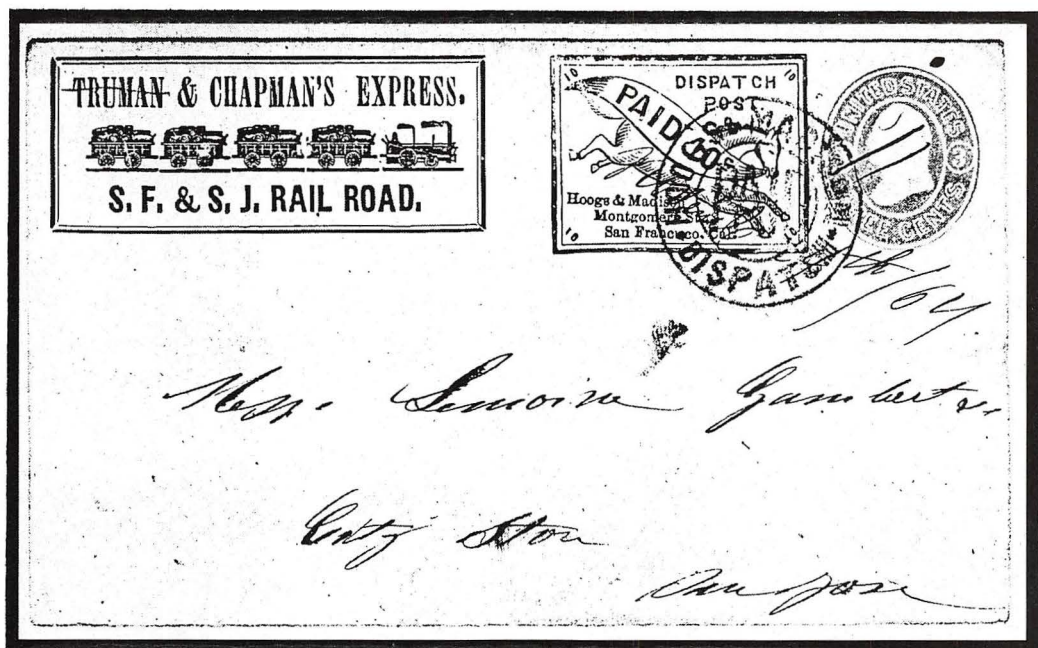 TRUMAN & CHAPMAN'S EXPRESS.
S. F. & S. J. RAIL ROAD.
10
10
DISPATCH
POST
PAID
Hoogs & Madison
Montgomery
San Francisco. Cal.
10
10
DISPATCH
UNITED STATES
3
CENTS
th/64
Messrs. Lemoine Gambert &
City Store
San Jose